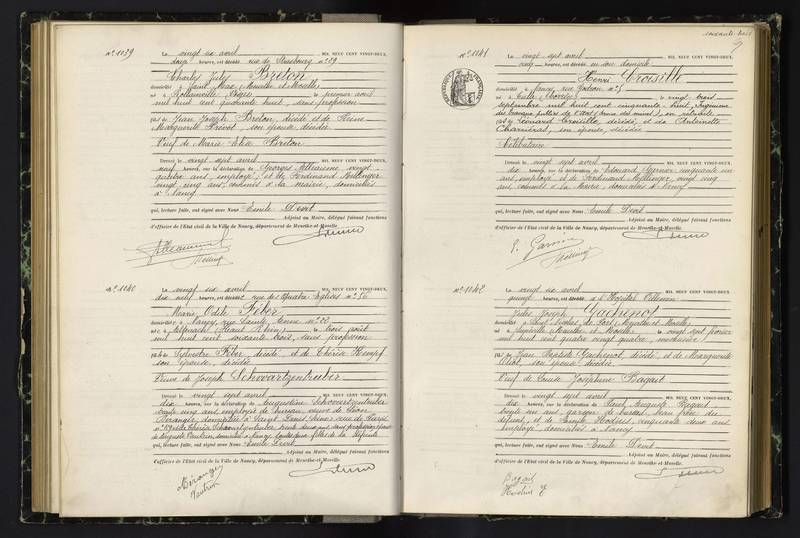 soixante-trois
N° 1139
Le vingt six avril MIL NEUF CENT VINGT-DEUX,
heures, est décédé rue de Strasbourg n° 29
Charles Jules Breton
domicilié à
né à le premier août
mil huit cent quarante huit, sans profession
fils de Jean Joseph Breton, décédé et de Reine
Marguerite Prévot, son épouse décédée
Veuf de Marie Breton
Dressé le vingt sept avril MIL NEUF CENT VINGT-DEUX,
neuf heures, sur la déclaration de Georges vingt
quatre ans, employé, et de Ferdinand
vingt cinq ans, commis à la mairie, domiciliés
à Nancy
qui, lecture faite, ont signé avec Nous Emile Devit
Adjoint au Maire, délégué faisant fonctions
d'officier de l'Etat civil de la Ville de Nancy, département de Meurthe-et-Moselle.
N° 1140
Le vingt six avril MIL NEUF CENT VINGT-DEUX,
dix neuf heures, est décédée rue des Quatre Eglises n° 56
Marie Odile Fiber
domiciliée à Nancy, rue Sainte Anne n° 22
née à le trois août
mil huit cent soixante trois, sans profession
fille de Sylvestre Fiber décédé, et de Thérèse Kempf
son épouse, décédée
Veuve de Joseph Schwartzentruber
Dressé le vingt sept avril MIL NEUF CENT VINGT-DEUX,
dix heures, sur la déclaration de Augustine Schwartzentruber
trente cinq ans, employée de bureau, veuve de
rue de Paris
trente deux ans, sans profession, épouse
de Auguste domiciliée à Nancy, toutes deux filles de la défunte
qui, lecture faite, ont signé avec Nous Emile Devit
Adjoint au Maire, délégué faisant fonctions
d'officier de l'Etat civil de la Ville de Nancy, département de Meurthe-et-Moselle.
N° 1141
Le vingt sept avril MIL NEUF CENT VINGT-DEUX,
cinq heures, est décédé en son domicile
Henri Croisille
domicilié à Nancy, rue n° 5
né à Tulle (Corrèze) le vingt trois
septembre mil huit cent cinquante huit, Ingénieur
des travaux publics de l'état en retraite
fils de Léonard Croisille décédé, et de Antoinette
son épouse, décédée
Célibataire
Dressé le vingt sept avril MIL NEUF CENT VINGT-DEUX,
dix heures, sur la déclaration de Edouard Garnier cinquante un
ans, employé et de Ferdinand vingt cinq
ans, commis à la Mairie, domiciliés à Nancy
qui, lecture faite, ont signé avec Nous Emile Devit
Adjoint au Maire, délégué faisant fonctions
d'officier de l'Etat civil de la Ville de Nancy, département de Meurthe-et-Moselle.
E. Garnier
N° 1142
Le vingt six avril MIL NEUF CENT VINGT-DEUX,
quinze heures, est décédé à l'Hôpital Villemin
Jules Joseph Gachenot
domicilié à Saint Nicolas de Port, Meurthe et Moselle
né à Meurthe et Moselle, le vingt février
mil huit cent quatre vingt quatre,
fils de Jean Baptiste Gachenot, décédé, et de Marguerite
son épouse décédée
Veuf de Louise Joséphine Bagard
Dressé le vingt sept avril MIL NEUF CENT VINGT-DEUX,
dix heures, sur la déclaration de Auguste Bagard
trente un ans, garçon de bureau, beau frère du
défunt, et de cinquante deux ans
employé, domiciliés à Nancy
qui, lecture faite, ont signé avec Nous Emile Devit
Adjoint au Maire, délégué faisant fonctions
d'officier de l'Etat civil de la Ville de Nancy, département de Meurthe-et-Moselle.
Bagard